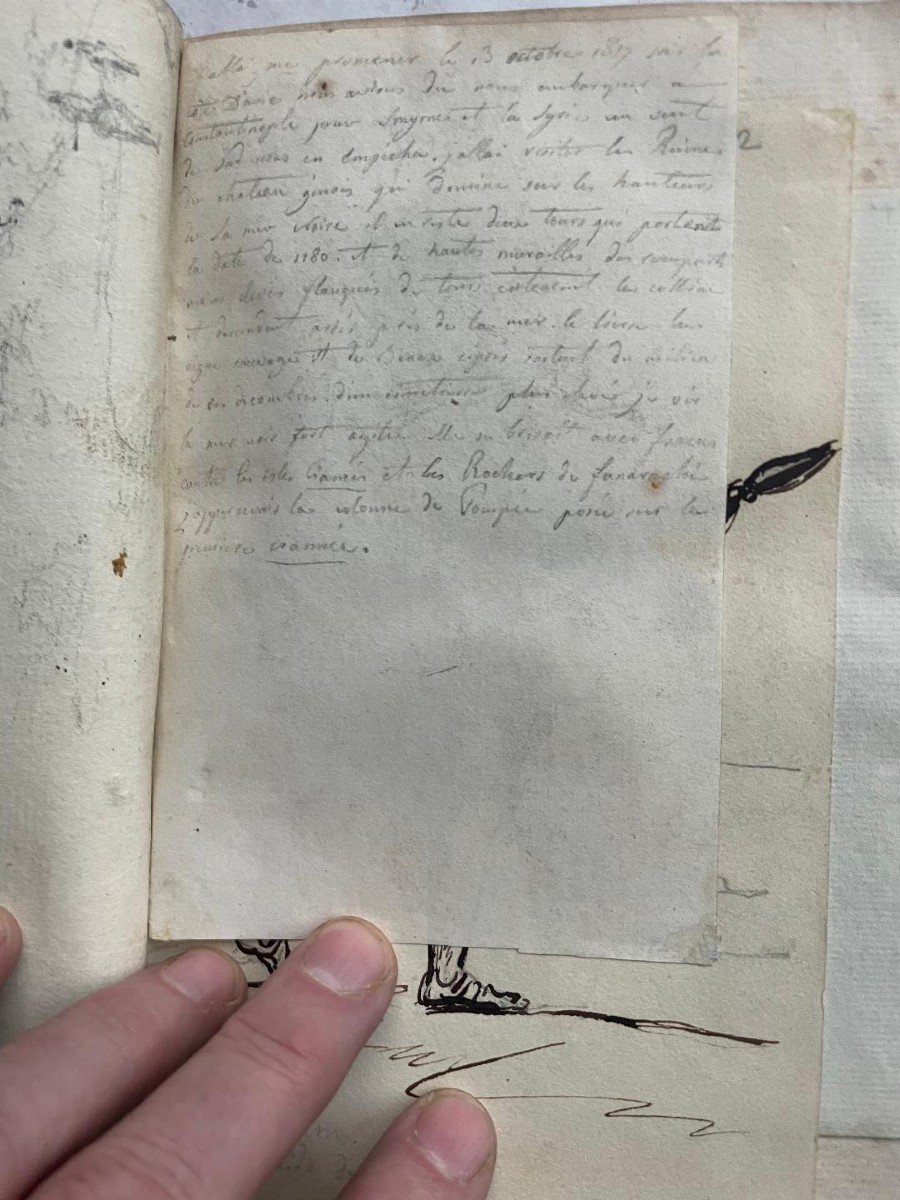 allé me promener le 13 octobre 1817 sur la
nous avions dû nous embarquer a
Constantinople pour Smyrne et la Syrie un vent
de sud nous en empecha. j'allai visiter les Ruines
du chateau genois qui Domine sur les hauteurs
de la mer Noire il en reste deux tours qui portent
la date de 1180. et de hautes murailles des rempart
flanqués de tours la colline
et descendent assés près de la mer. le lierre le
sauvage et de Beaux sortent du milieu
de ces décombres. d'une plus élevée je vis
la mer noir fort agitée Elle se brisoit avec fracas
contre les isles Cianées et les Rochers de fanaraki
j'appercevois la colonne de Pompée posée sur la
premiere ciannée.
2